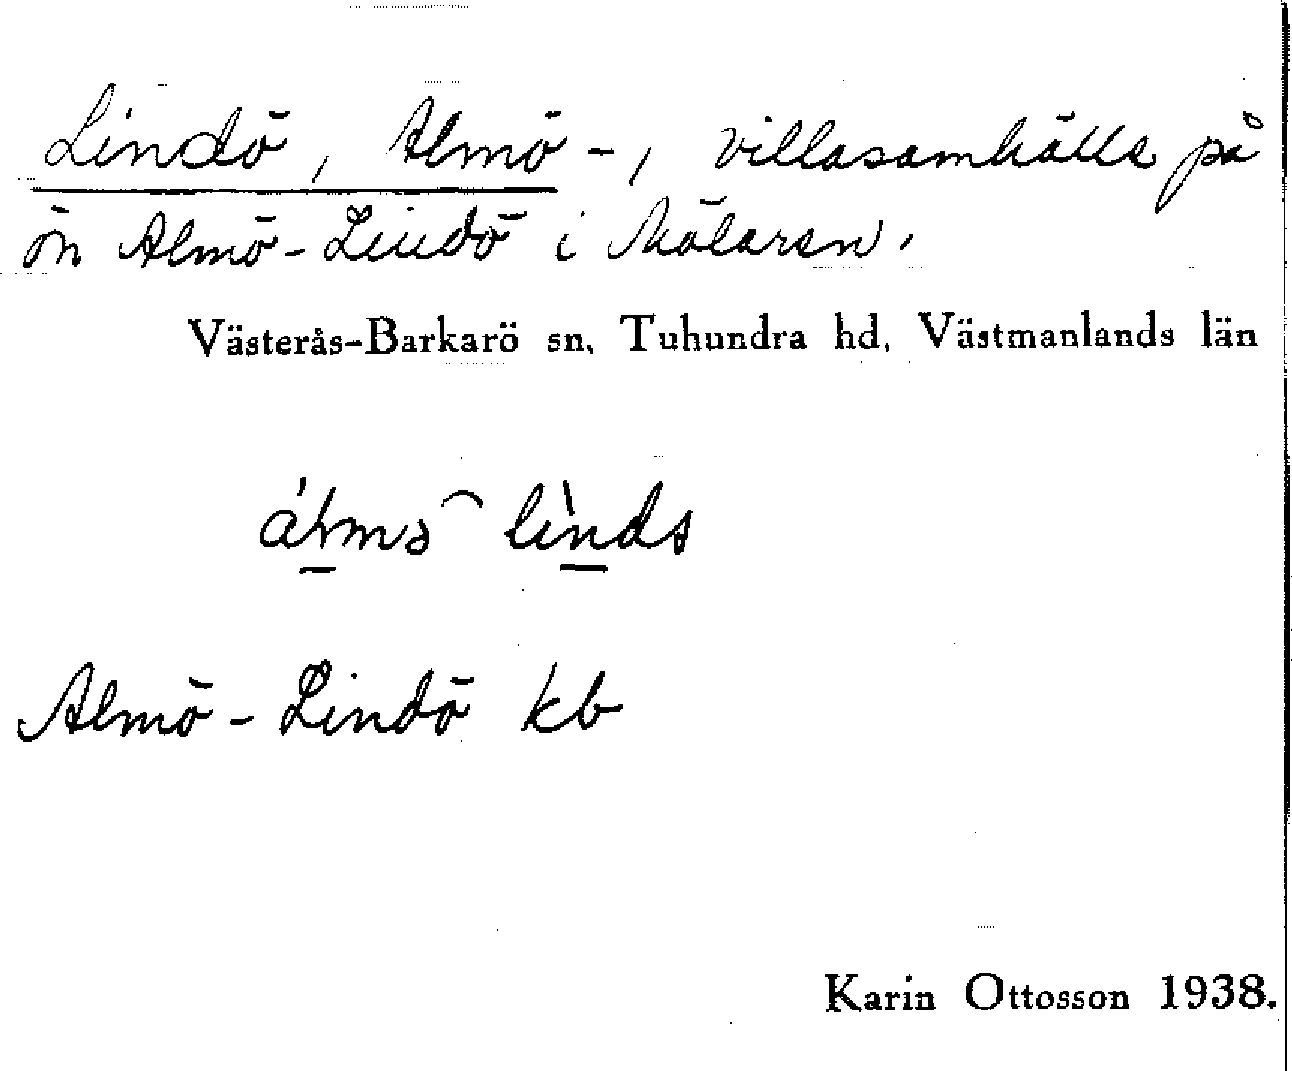 Lindö, Almö-, villasamhälle på
ön Almö-Lindö i Mälaren.
Västerås-Barkarö sn, Tuhundra hd, Västmanlands län
Almö-Lindö kb
Karin Ottosson 1938.